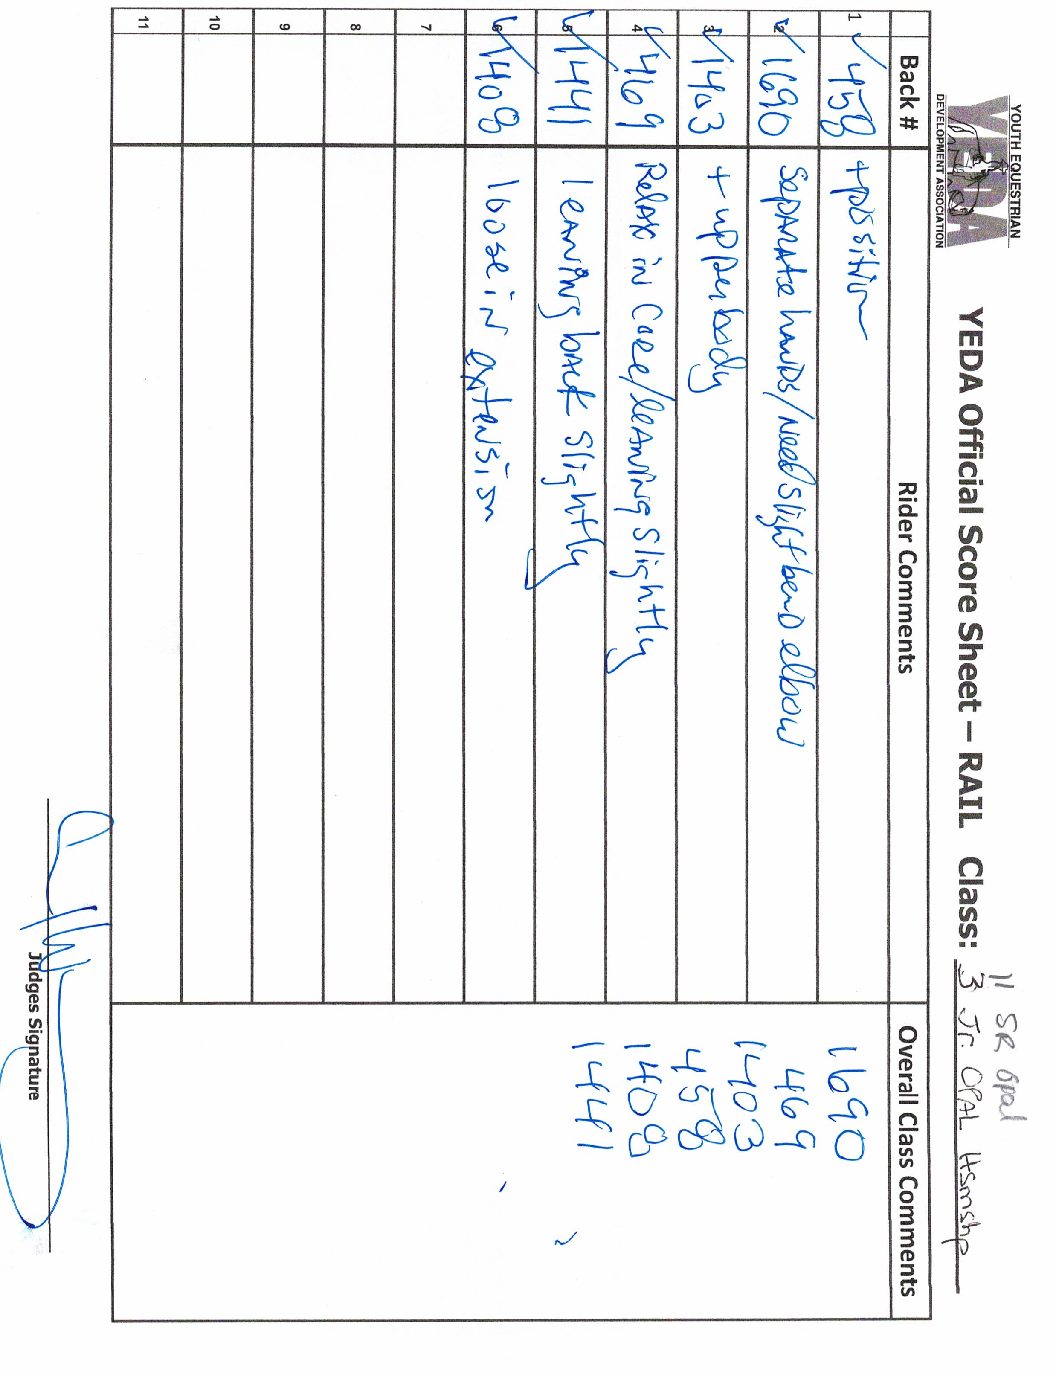 YOUTH EQUESTRIAN
YEDA
DEVELOPMENT ASSOCIATION
YEDA Official Score Sheet – RAIL Class: 3 Jr. OPAL Hsmshp
11 SR Opal
Back # Rider Comments Overall Class Comments
1 ✓458 + position 1690
2 ✓1690 Separate hands/need slight bend elbow 469
3 ✓1403 + upper body 1403
4 ✓469 Relax in Core/leaning slightly 458
5 ✓1441 leaning back slightly 1408
6 ✓1408 loose in extension 1441
7
8
9
10
11
Judges Signature